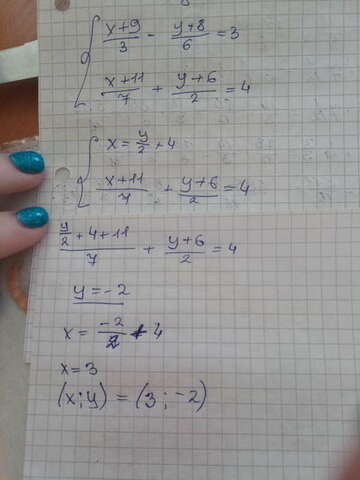 x+9/3 - y+8/6 = 3
x+11/7 + y+6/2 = 4
x = y/2 + 4
x+11/7 + y+6/2 = 4
y/2 + 4 + 11/7 + y+6/2 = 4
y = -2
x = -2/2 + 4
x = 3
(x;y) = (3; -2)